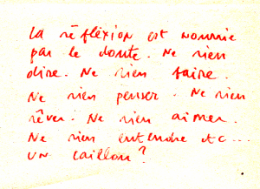 La réflexion est nourrie
par le doute. Ne rien
dire. Ne rien faire.
Ne rien penser. Ne rien
rêver. Ne rien aimer.
Ne rien entendre etc...
un caillou?